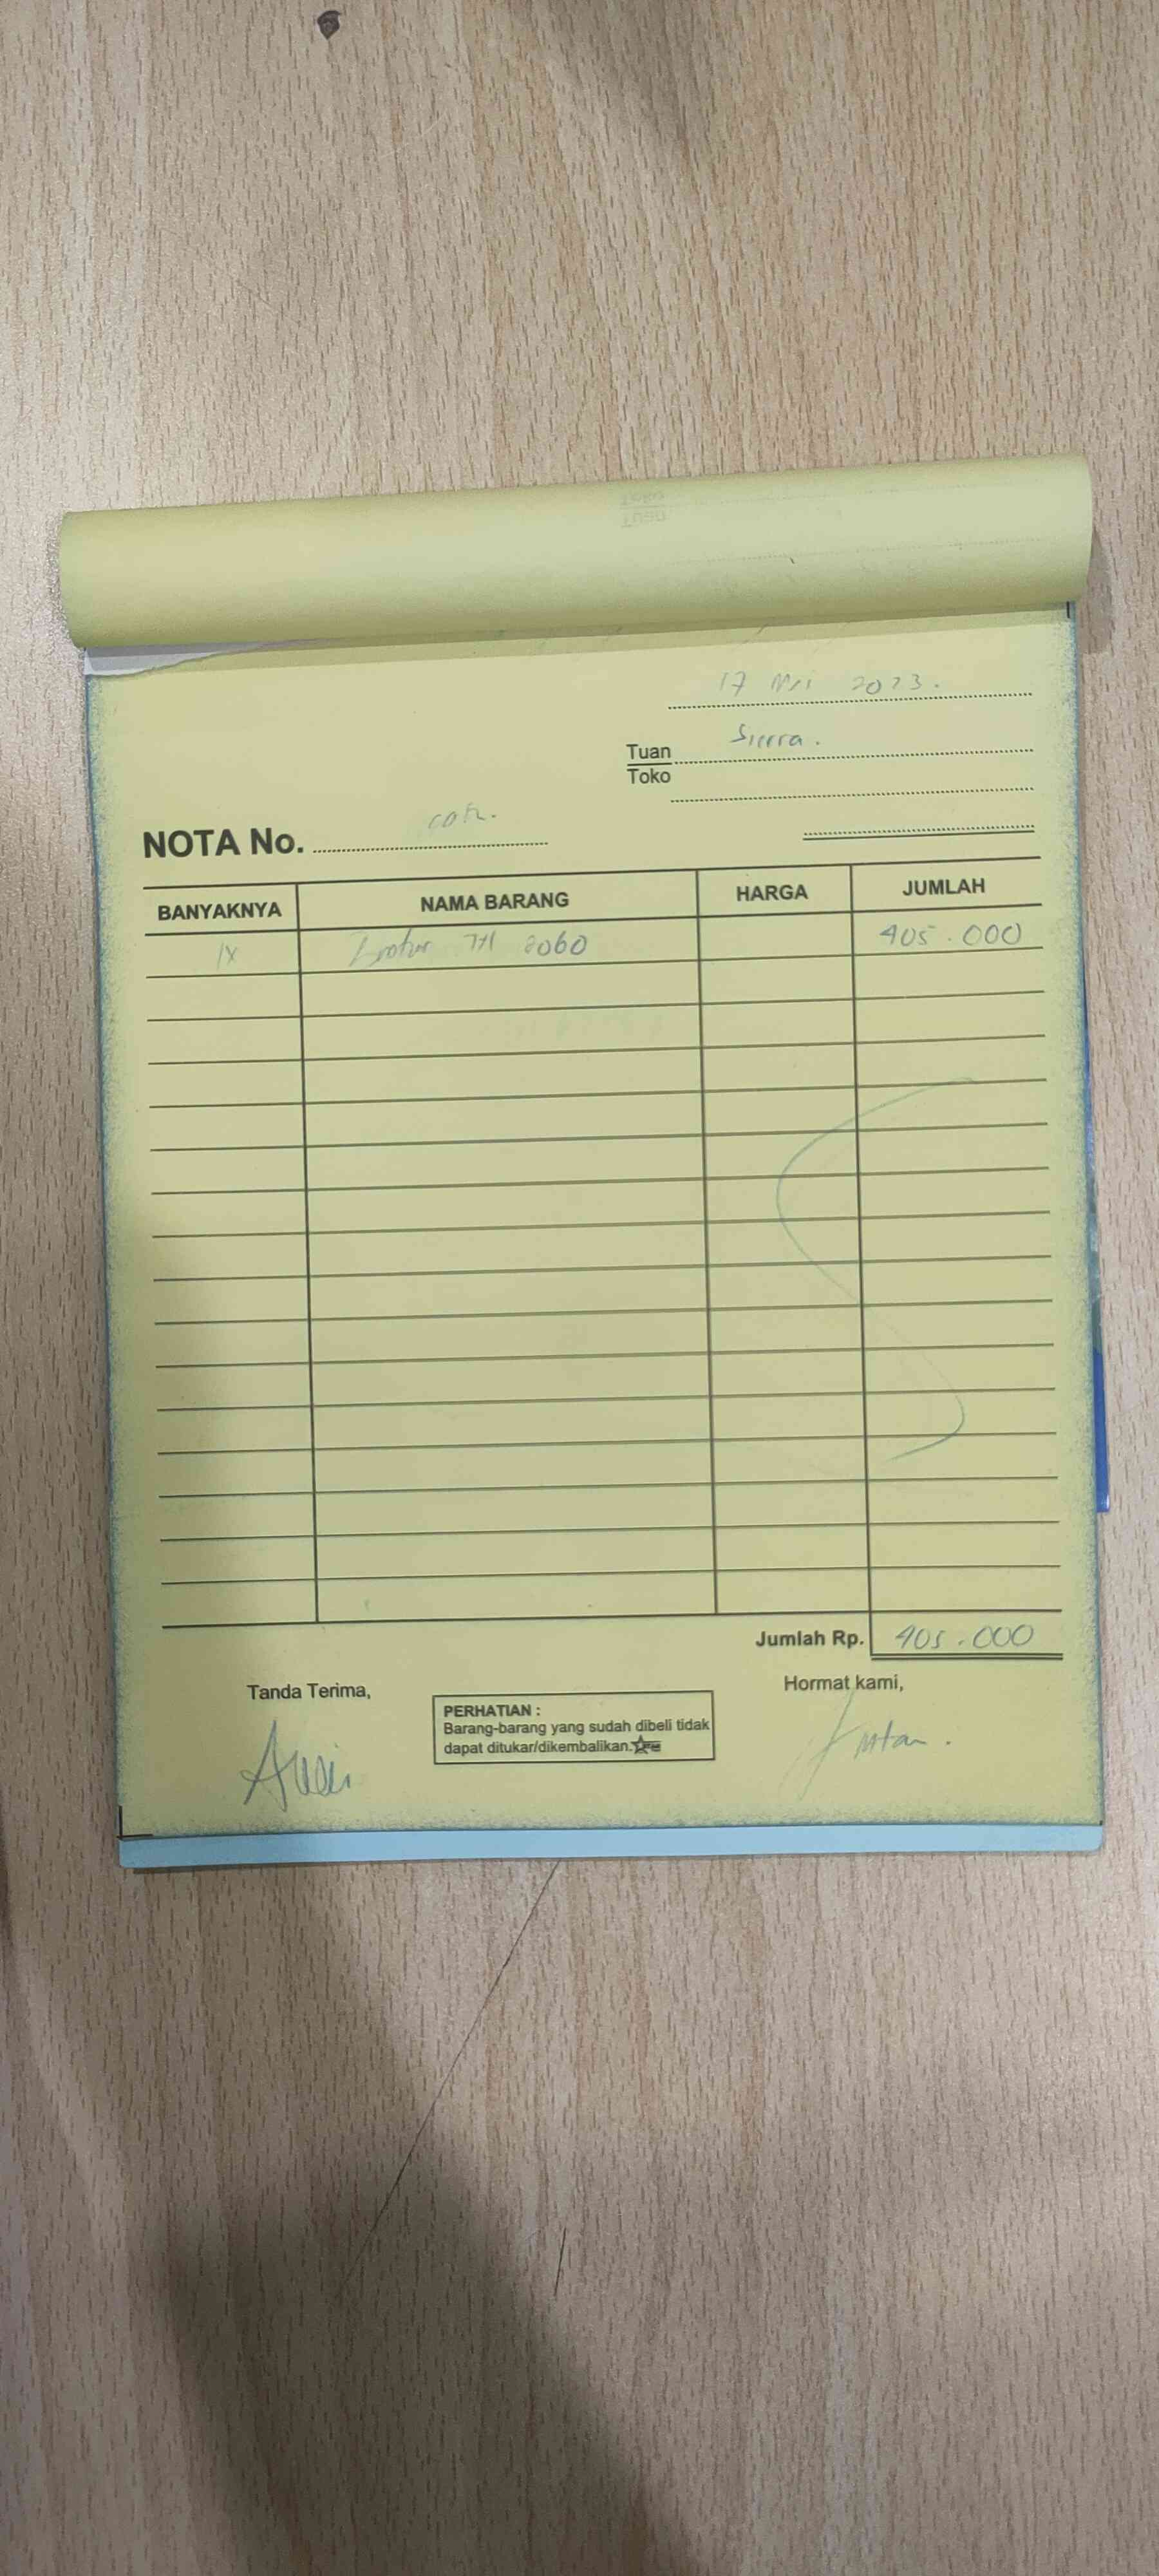 17 Mei 2023.
Tuan Sierra.
Toko
NOTA No. cash.
BANYAKNYA NAMA BARANG HARGA JUMLAH
1x 2060 405.000
Jumlah Rp. 405.000
Tanda Terima, Hormat kami,
PERHATIAN :
Barang-barang yang sudah dibeli tidak
dapat ditukar/dikembalikan.
Intan.